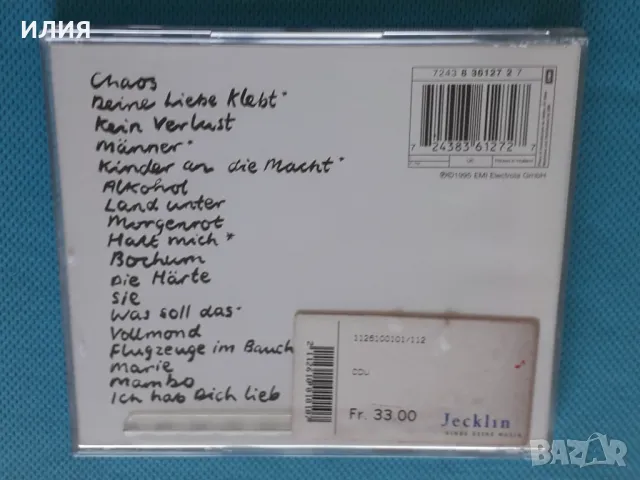 илия
Chaos
Deine Liebe Klebt*
Kein Verlust
Männer*
Kinder an die Macht*
Alkohol
Land unter
Morgenrot
Halt mich*
Bochum
Die Härte
Sie
Was soll das*
Vollmond
Flugzeuge im Bauch
Marie
Mambo
Ich hab Dich lieb
7243 8 36127 2 7
7 24383 61272 7
UK
Printed in Holland
℗©1995 EMI Electrola GmbH
1126100101/112
CDU
Fr. 33.00
Jecklin
BAZAR
bg